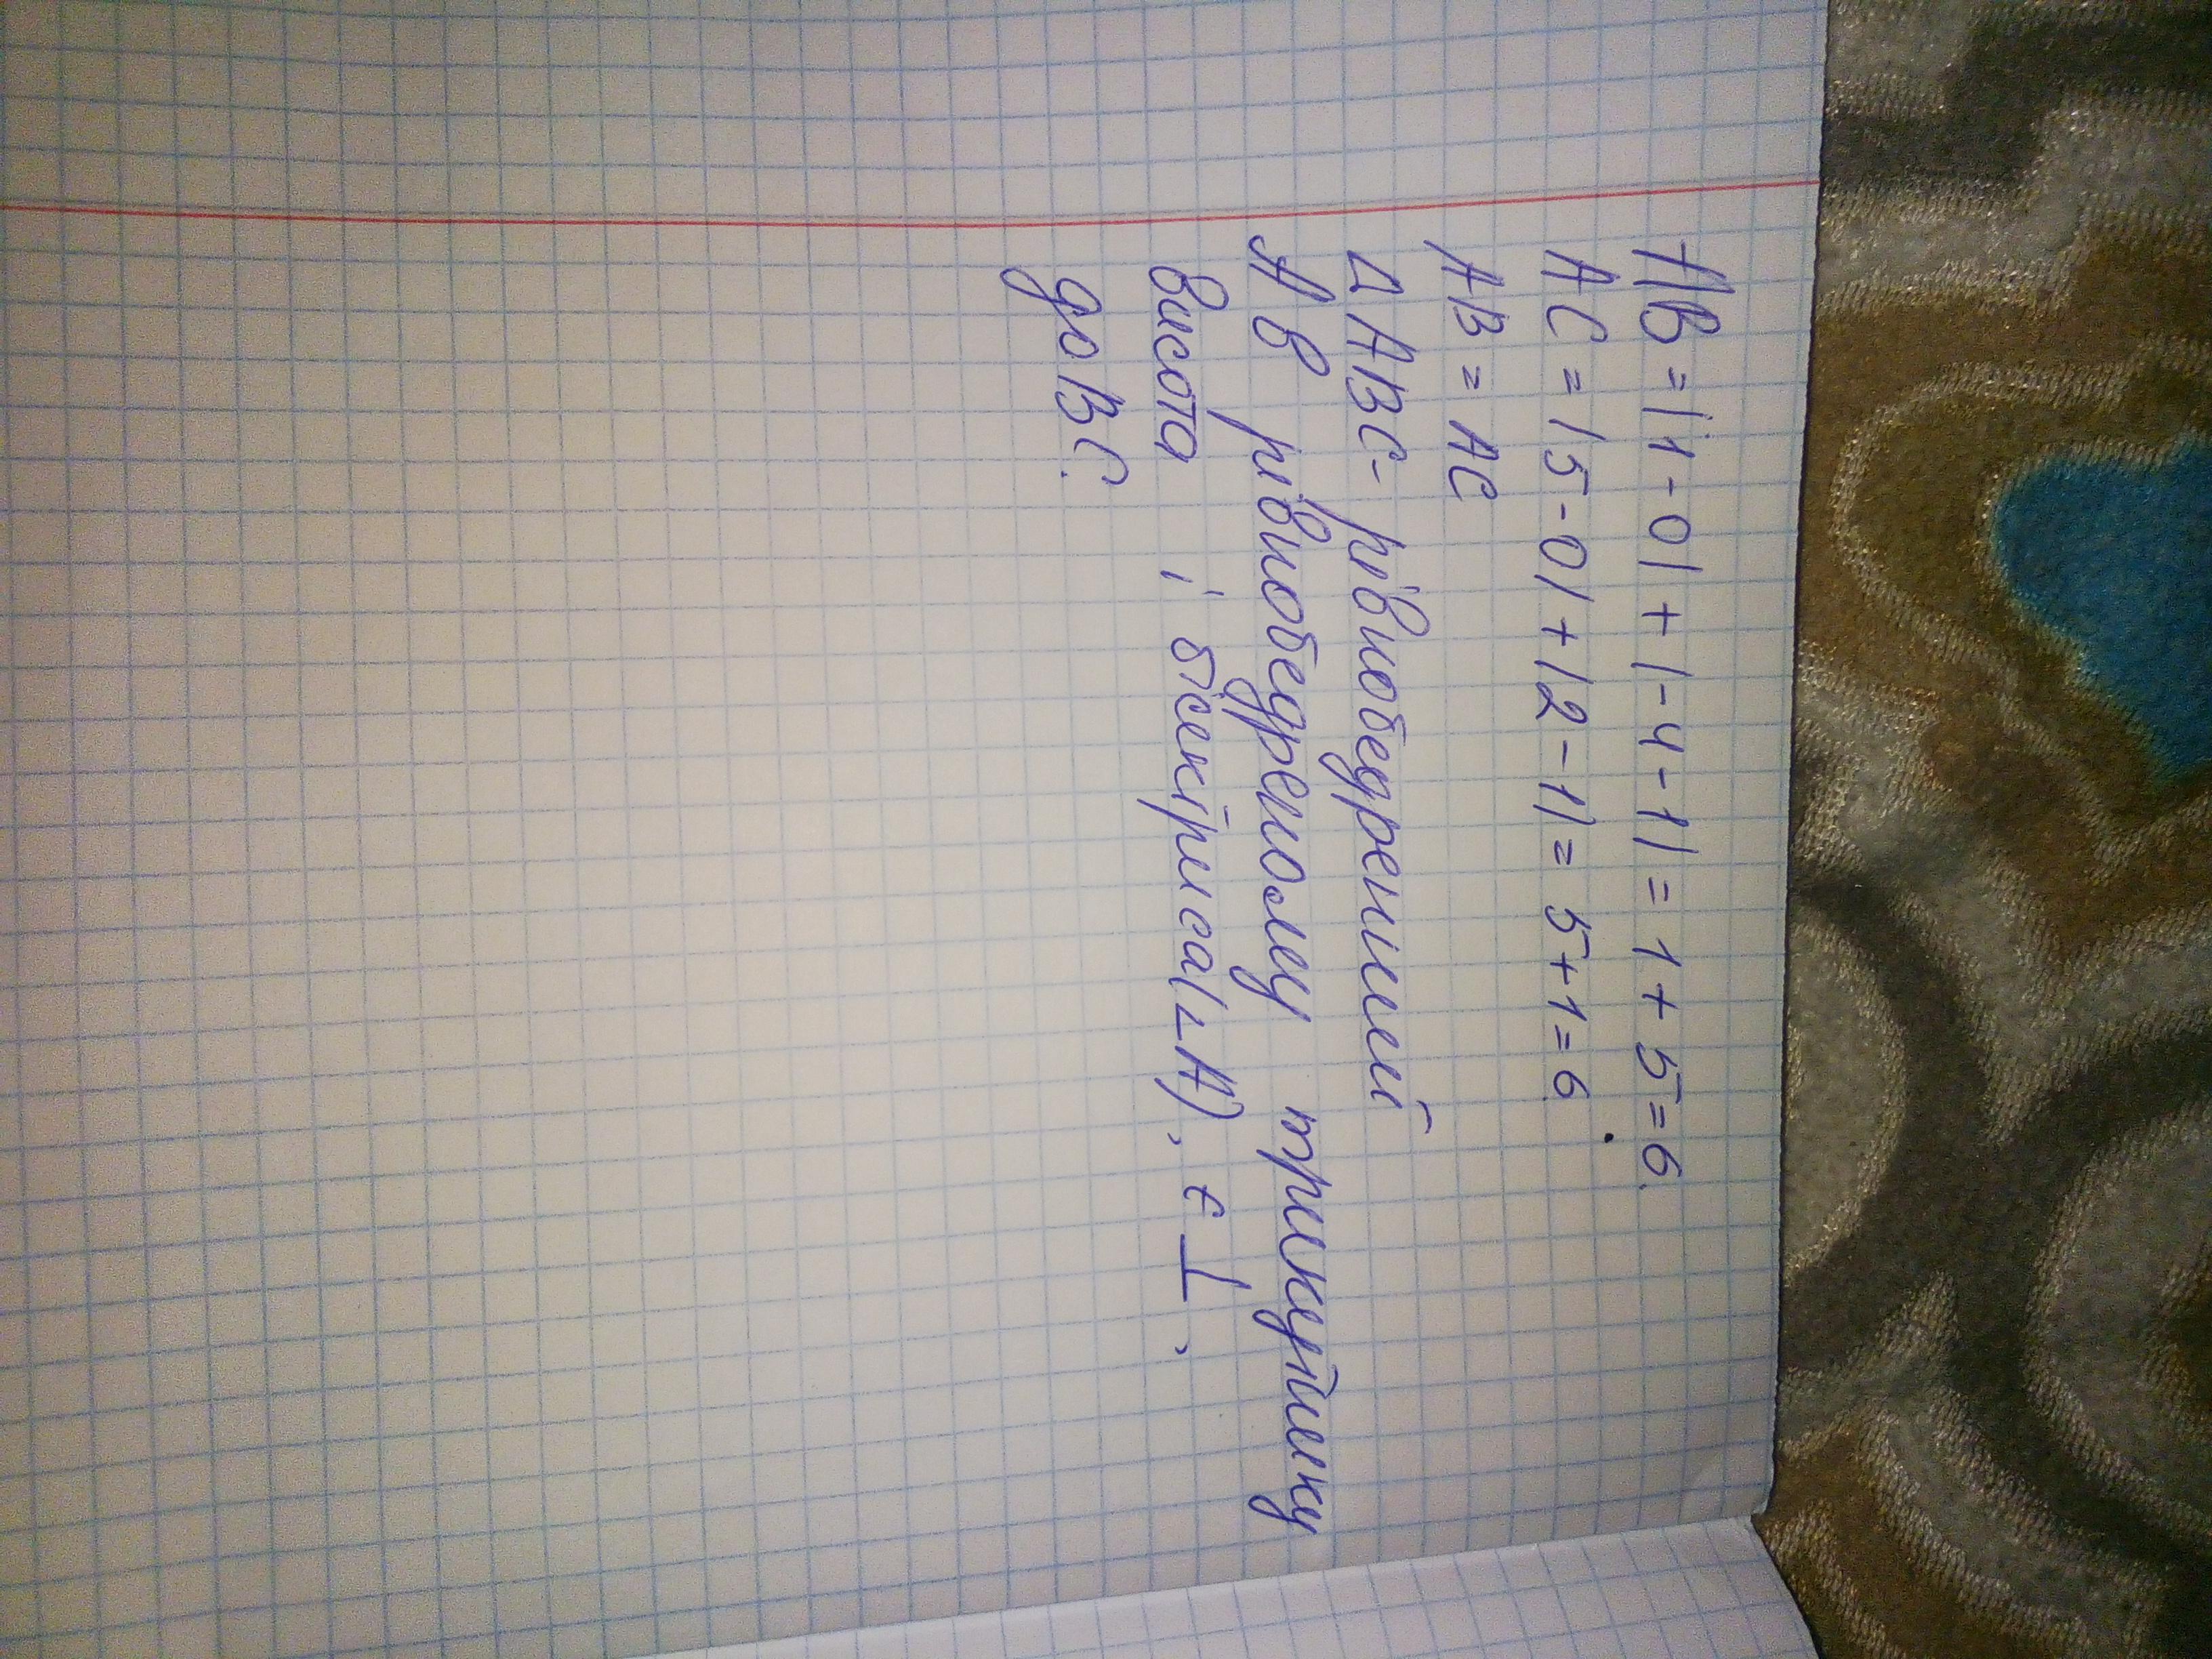 AB = |1 - 0| + |-4 - 1| = 1 + 5 = 6.
AC = |5 - 0| + |2 - 1| = 5 + 1 = 6
AB = AC
Δ ABC - рівнобедрений
А в рівнобедреному трикутнику
висота і бісектриса(∠A), є ⊥,
до BC.